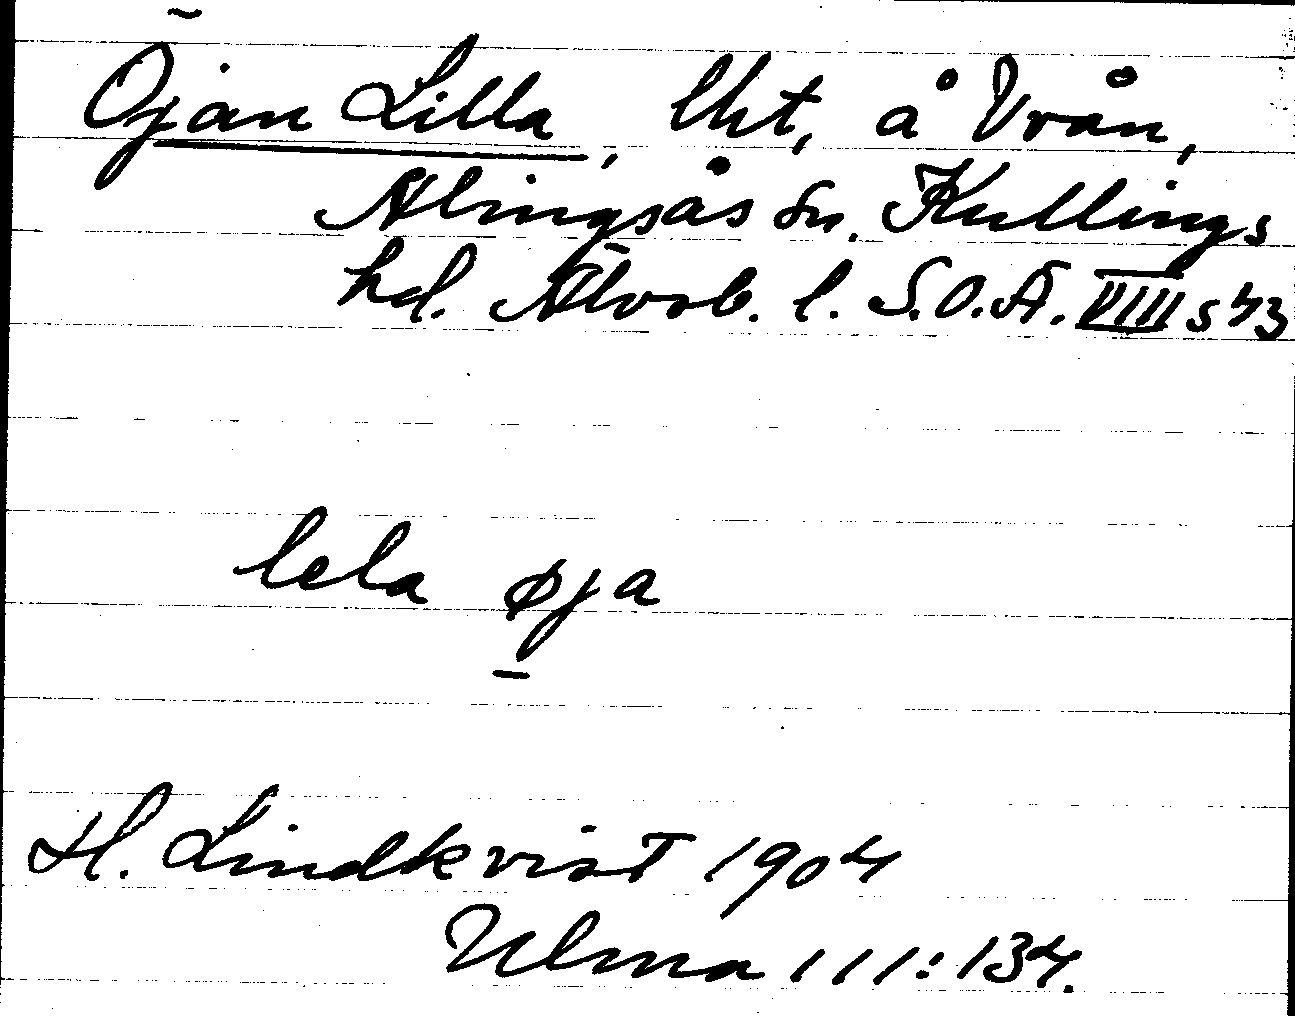 Öjan Lilla, lht, å Vrån,
Alingsås sn. Kullings
hd. Älvsb. l. S.O.Ä. VIIII s 43
lela øja
H. Lindkvist 1904
Ulma 111:134.